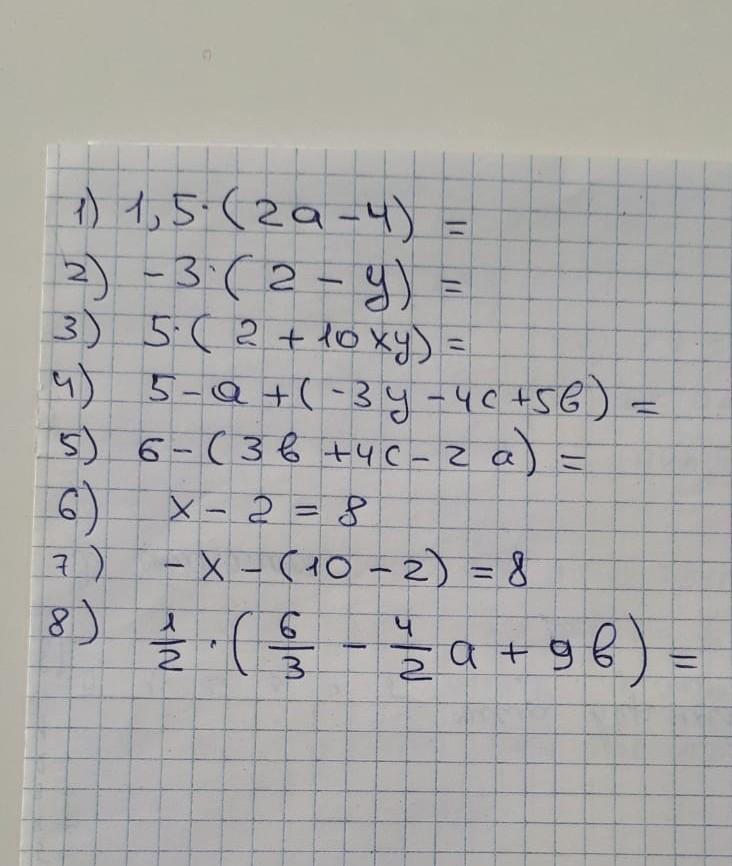 1) 1,5·(2a-4) =
2) -3·(2-y) =
3) 5·(2+10xy) =
4) 5-a+(-3y-4c+5в) =
5) 6-(3в+4c-2a) =
6) x-2=8
7) -x-(10-2)=8
8) 1/2·(6/3-4/2a+9в) =